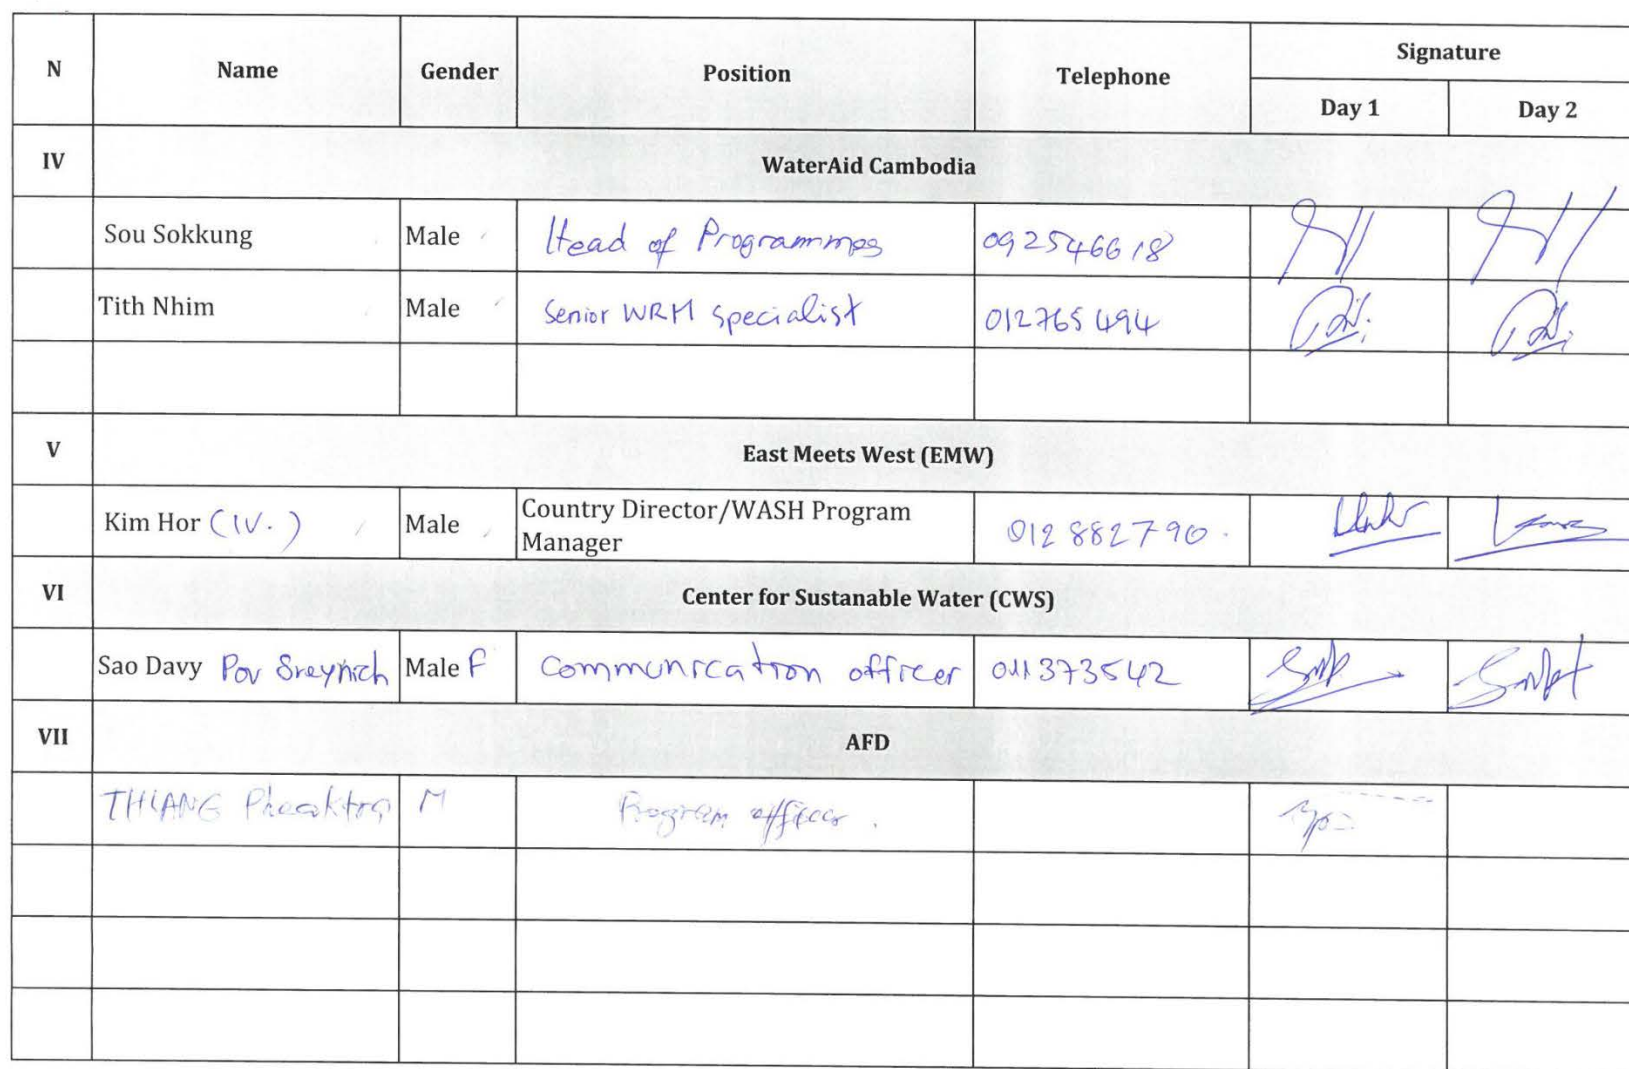 N Name Gender Position Telephone Signature
Day 1 Day 2
IV WaterAid Cambodia
Sou Sokkung Male Head of Programmes 092546618
Tith Nhim Male Senior WRM specialist 012765494
V East Meets West (EMW)
Kim Hor (IV.) Male Country Director/WASH Program
Manager 012 882790.
VI Center for Sustanable Water (CWS)
Sao Davy Pov Sreynich Male F Communication officer 011373542
VII AFD
THIANG Pheaktra M Program officer.